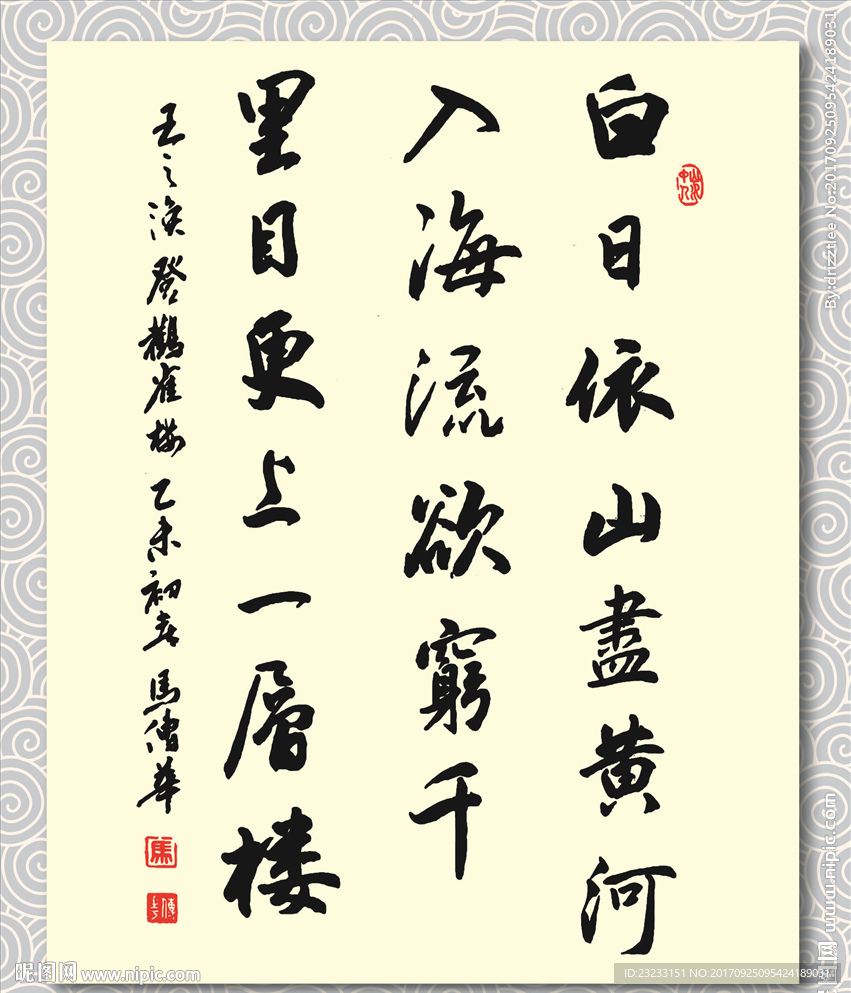 白日依山盡黄河
入海流欲窮千
里目更上一層楼
王之渙登鸛雀楼 乙未初春 馬傳華
馬
By:drizztlee No:20170925095424189031
昵图网 www.nipic.com
昵图网 www.nipic.com
ID:23233151 NO:20170925095424189031